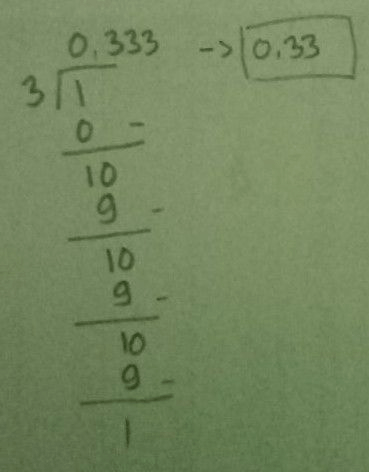 0.333 -> 0.33
3 1
0 -
10
9 -
10
9 -
10
9 -
1